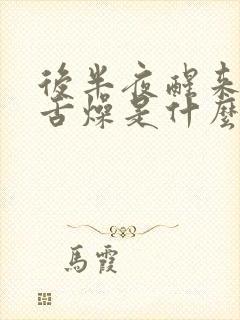 後半夜醒來
舌燥是什麼
馬霞